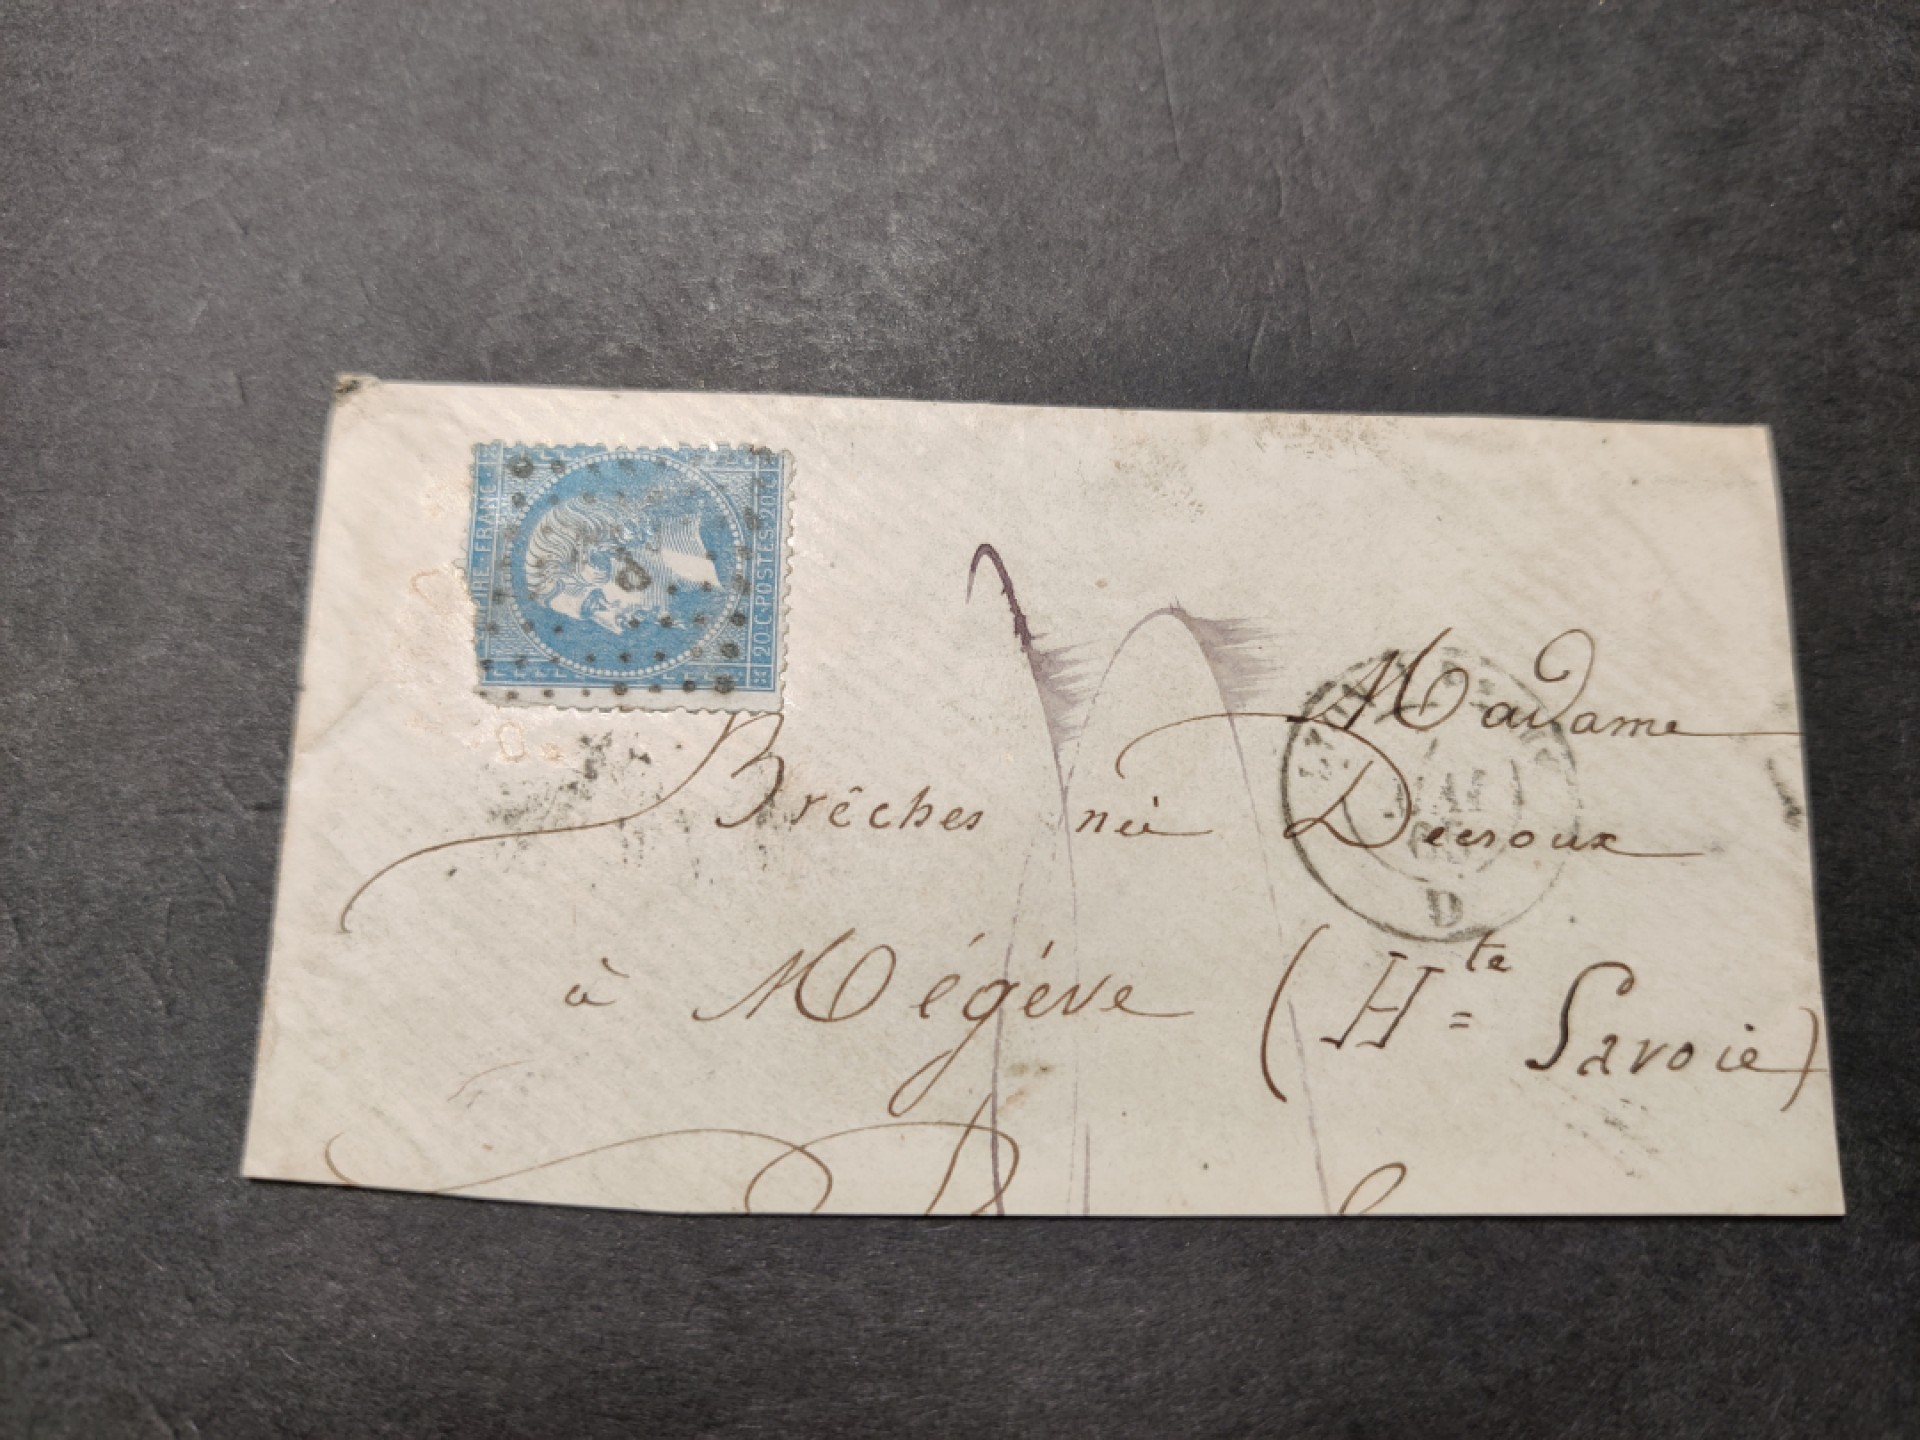 EMPIRE FRANC
20 C POSTES 20 C
Madame
Brêches née
à Mégéve (Hte Savoie)
D